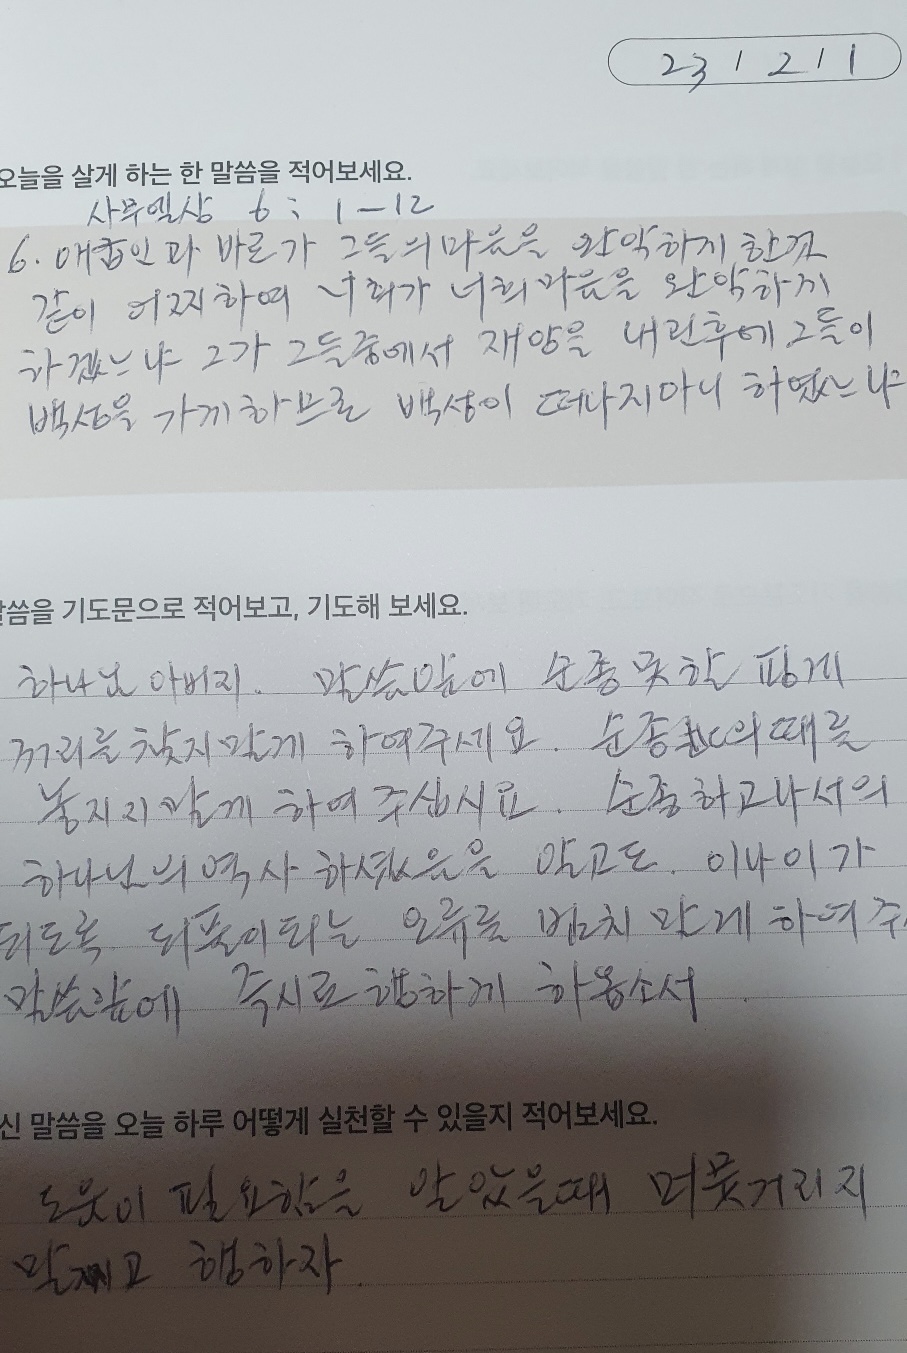 231211
오늘을 살게 하는 한 말씀을 적어보세요.
사무엘상 6: 1-12
6. 애굽인과 바로가 그들의 마음을 완악하게 한것
같이 어찌하여 너희가 너희 마음을 완악하게
하겠느냐 그가 그들중에서 재앙을 내린후에 그들이
백성을 가게하므로 백성이 떠나지아니 하였느냐
말씀을 기도문으로 적어보고, 기도해 보세요.
하나님 아버지. 말씀앞에 순종못할 핑계
꺼리를 찾지말게 하여주세요. 순종의때를
놓지지말게 하여 주십시요. 순종하고나서의
하나님의 역사 하셨음을 알고도. 이나이가
되도록 되풀이되는 오류를 범치 말게 하여주
말씀앞에 즉시로 행하게 하옵소서
신 말씀을 오늘 하루 어떻게 실천할 수 있을지 적어보세요.
도움이 필요함을 알았을때 머뭇거리지
말고 행하자.